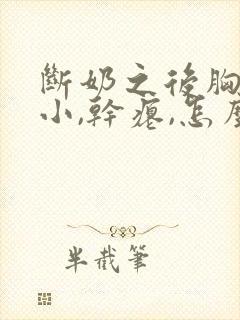 斷奶之後胸
小,幹癟,怎麼
半截筆